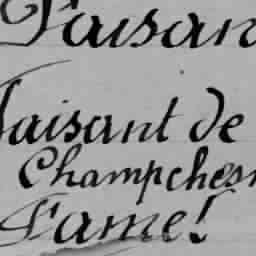 Faisan
Faisant de
Champches
Fame!